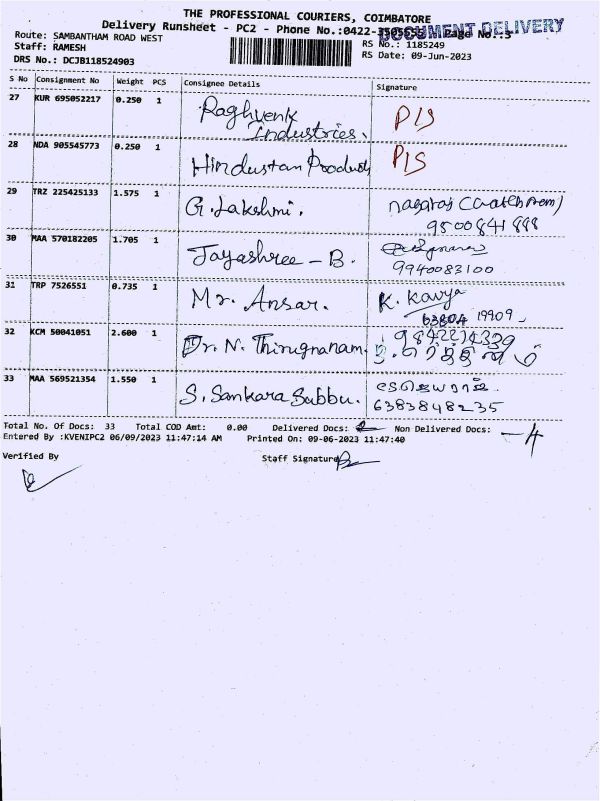 THE PROFESSIONAL COURIERS, COIMBATORE
Delivery Runsheet - PC2 - Phone No.:0422- Page No.:3
DOCUMENT DELIVERY
Route: SAMBANTHAM ROAD WEST
RS No.: 1185249
Staff: RAMESH
RS Date: 09-Jun-2023
DRS No.: DCJB118524903
S No Consignment No Weight PCS Consignee Details Signature
27 KUR 695052217 0.250 1 Raghvenk Industries. P/S
28 NDA 905545773 0.250 1 Hindustan Products P/S
29 TRZ 225425133 1.575 1 G. Lakshmi. nagaraj
9500841888
30 MAA 570182205 1.705 1 Jayashree - B.
9940083100
31 TRP 7526551 0.735 1 Mr. Ansar. K. Kavya
63804 19909
32 KCM 50041051 2.600 1 Dr. N. Thirugnanam. 9842214339
33 MAA 569521354 1.550 1 S. Sankara Subbu.
6383848235
Total No. Of Docs: 33 Total COD Amt: 0.00 Delivered Docs: Non Delivered Docs: -4
Entered By :KVENIPC2 06/09/2023 11:47:14 AM Printed On: 09-06-2023 11:47:40
Verified By Staff Signature